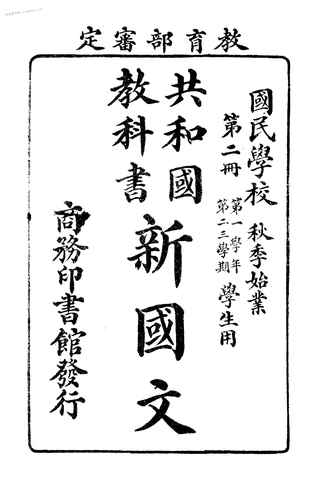 教育部審定
國民學校 秋季始業
第二冊 第一學年 第二三學期 學生用
共和國
教科書
新國文
商務印書館發行